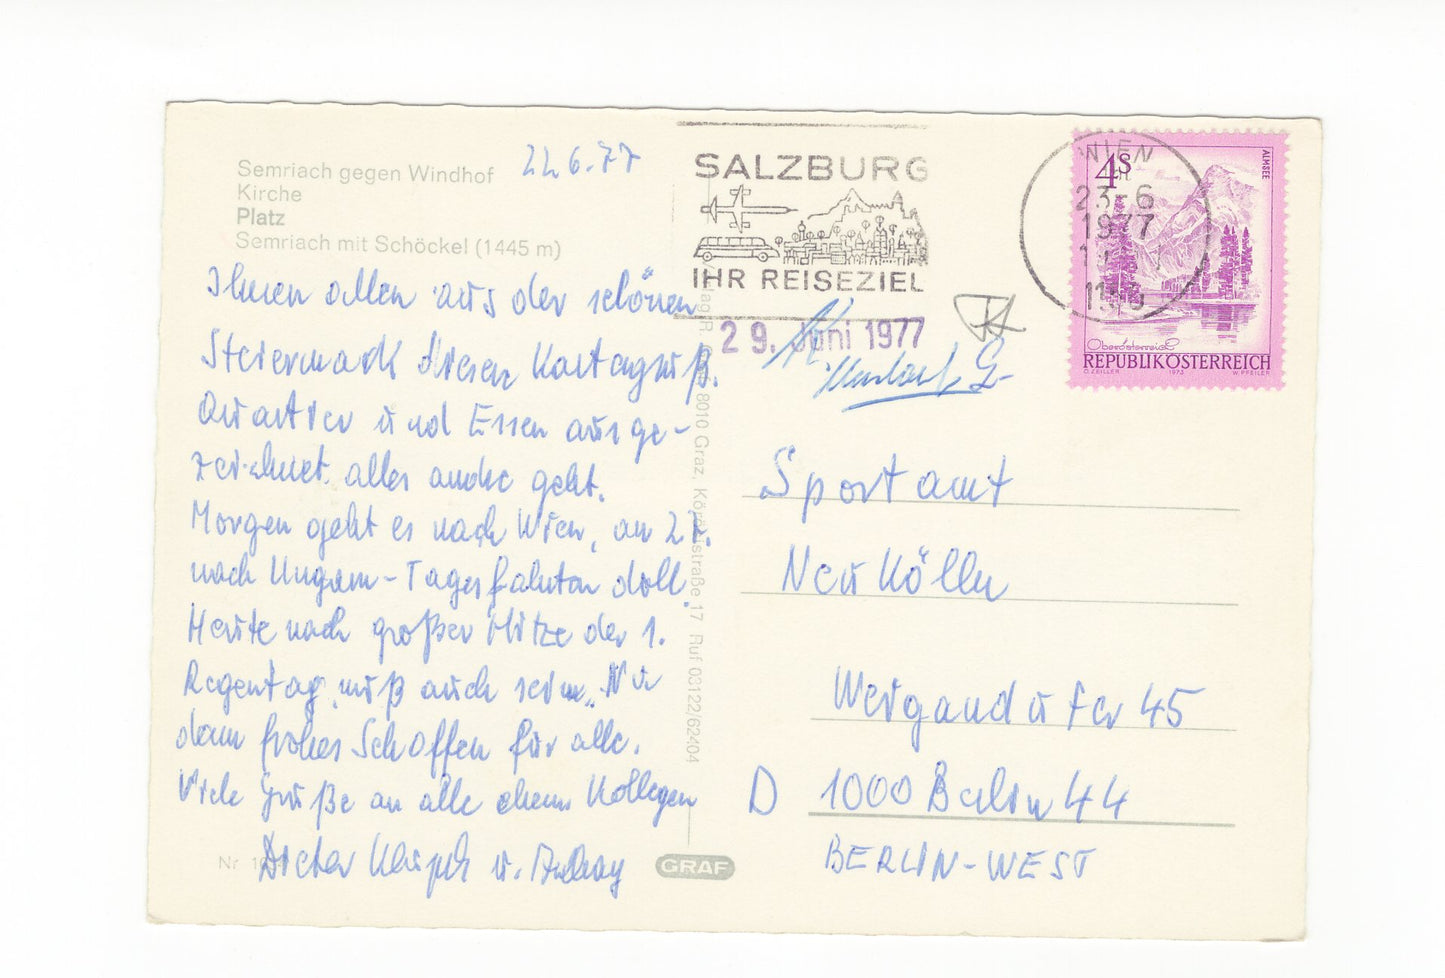 Semriach gegen Windhof
Kirche
Platz
Semriach mit Schöckel (1445 m)
22.6.77
Ihnen allen aus der schönen
Steiermark diesen Kartengruß.
Quartier und Essen ausge-
zeichnet. alles andre geht.
Morgen geht es nach Wien, am 27.
nach Ungarn - Tagesfahrten doll.
Heute nach großer Hitze der 1.
Regentag, muß auch sein. Nu
dann frohes Schaffen für alle.
Viele Grüße an alle ehem. Kollegen
Dieter
Nr
GRAF
8010 Graz, Körösistraße 17 Ruf 03122/62404
SALZBURG
IHR REISEZIEL
29. Juni 1977
WIEN
23-6
1977
4S
ALMSEE
Oberösterreich
REPUBLIK ÖSTERREICH
O. ZEILLER 1973 W. PFEILER
Sportamt
Neukölln
Weigandufer 45
D 1000 Berlin 44
BERLIN-WEST